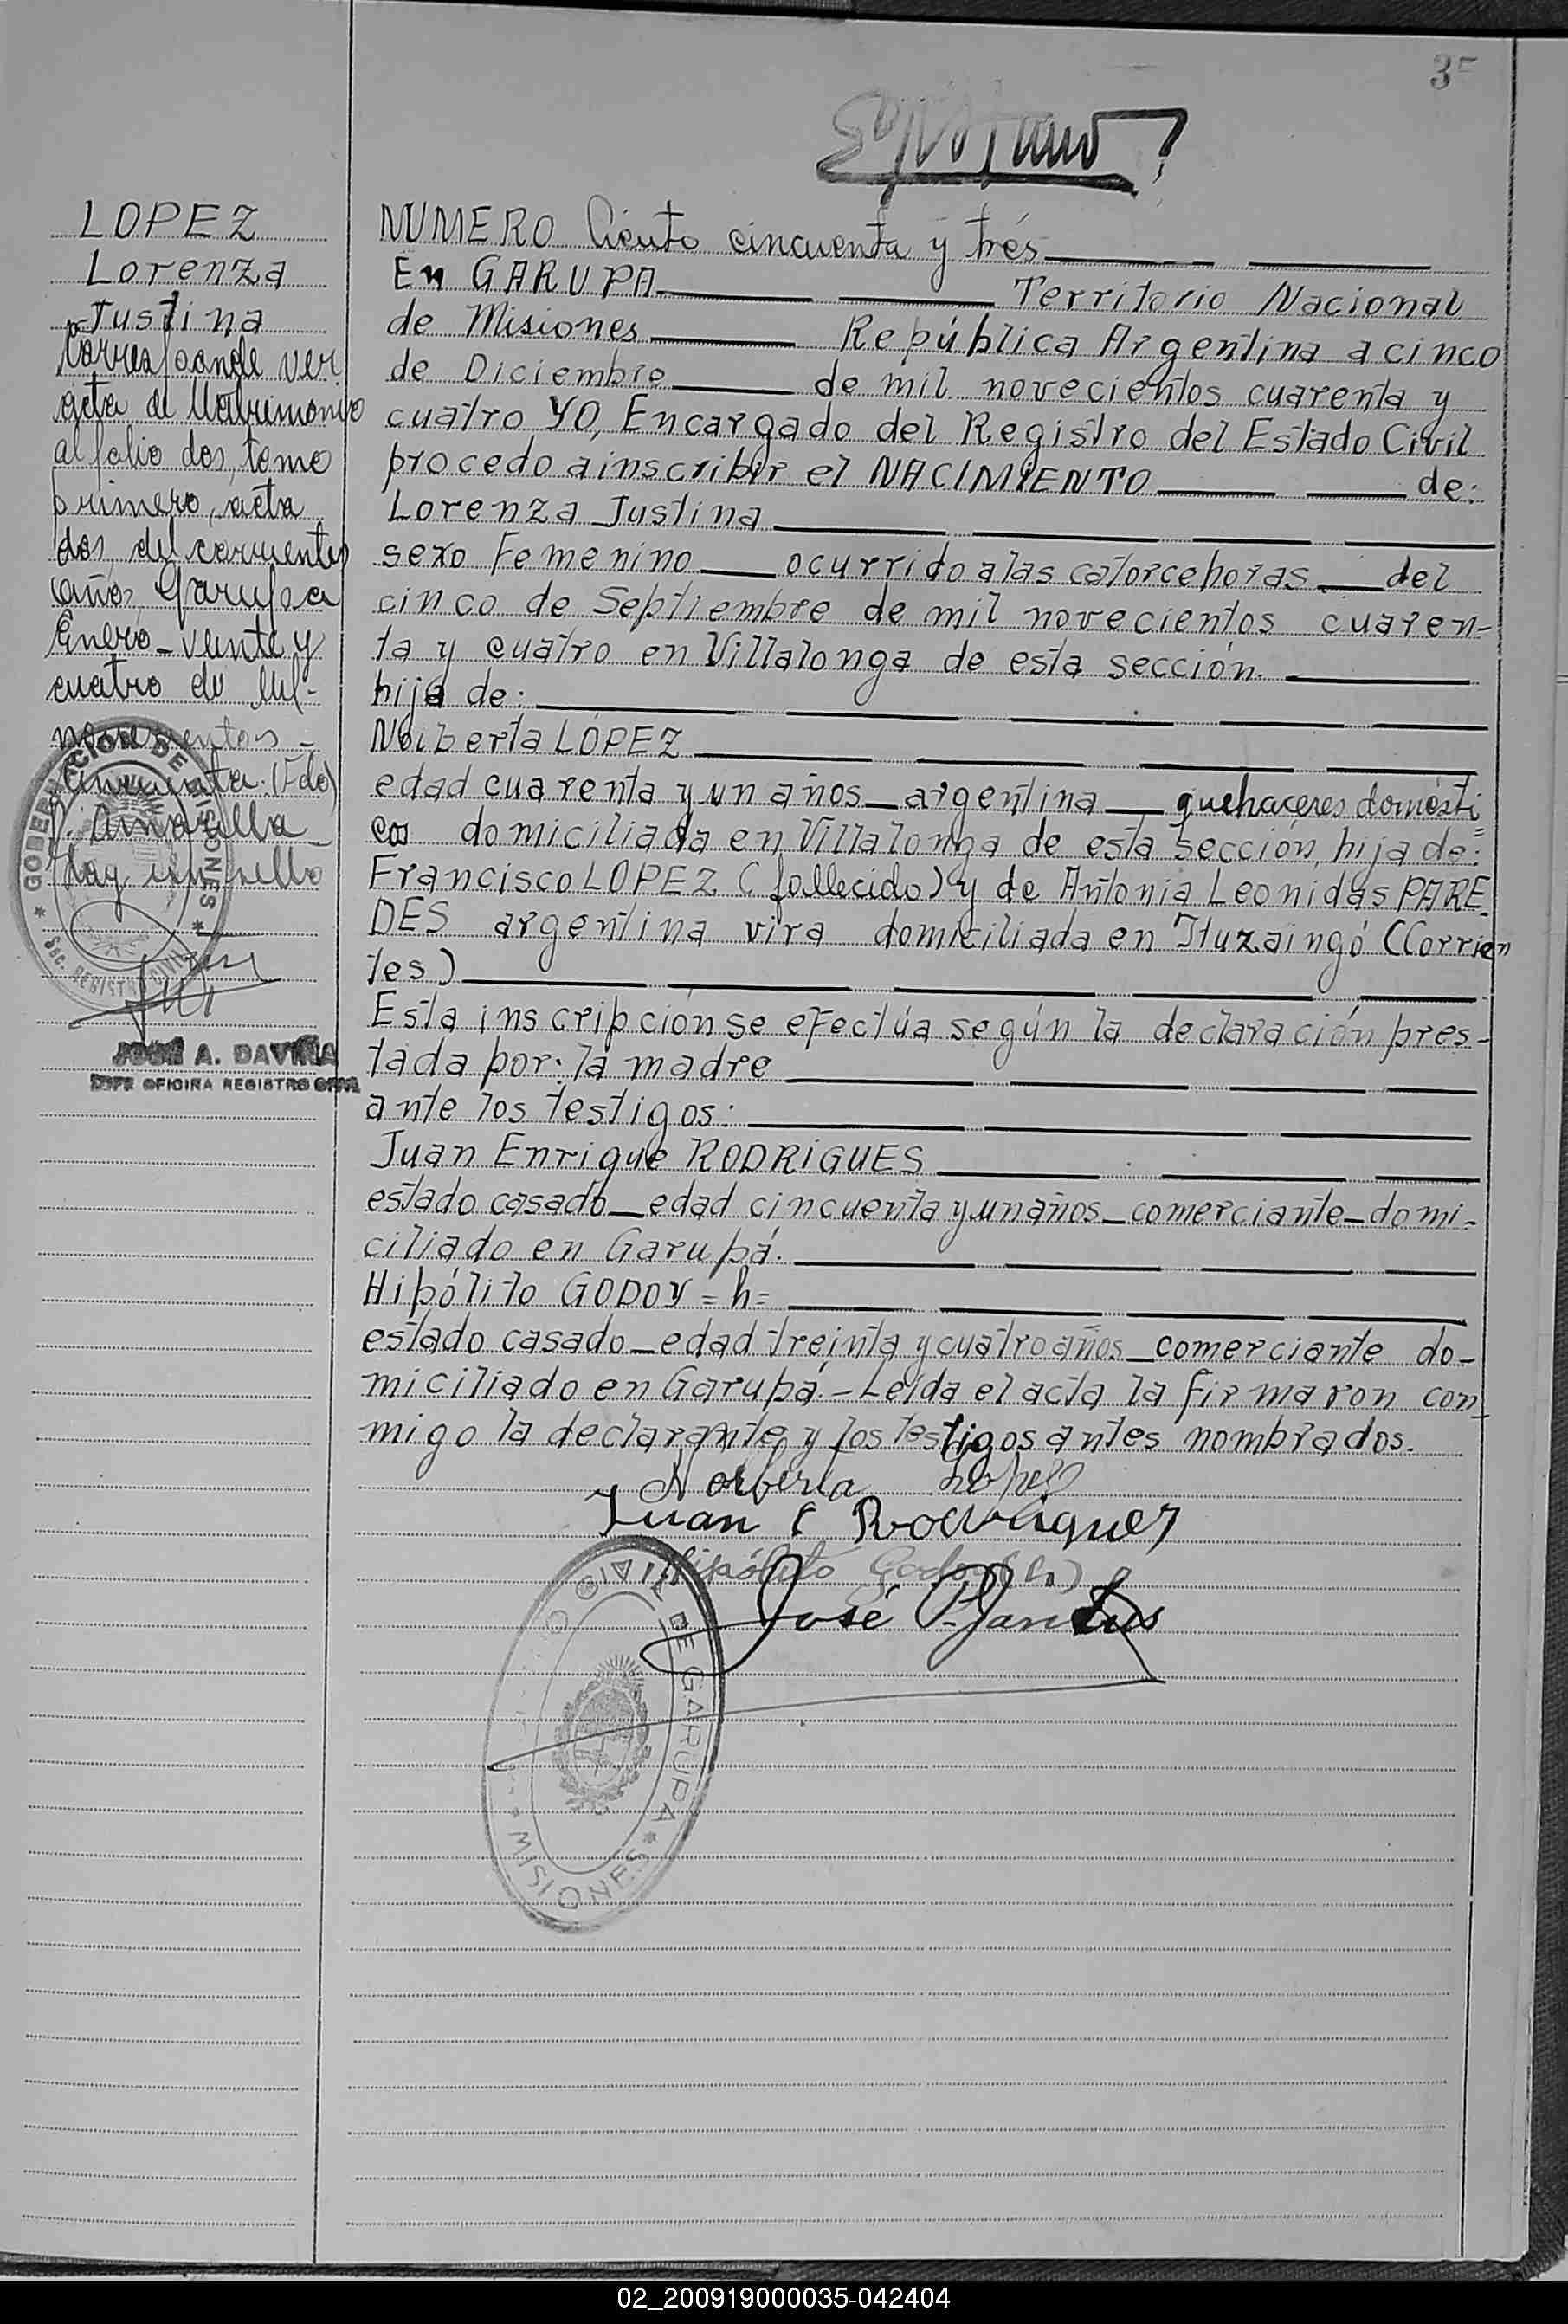 35
LOPEZ
Lorenza
Justina
Corresponde ver
acta de Matrimonio
al folio dos, tomo
primero, acta
dos, del corrientes
año, Garupa
Enero - veinte y
cuatro de mil
novecientos -
cincuenta. (Fdo)
Hay un sello
GOBERNACION DE MISIONES
SEC. REGISTRO CIVIL
JOSE A. DAVIÑA
JEFE OFICINA REGISTRO CIVIL
NUMERO Ciento cincuenta y trés
En GARUPA Territorio Nacional
de Misiones República Argentina a cinco
de Diciembre de mil novecientos cuarenta y
cuatro YO, Encargado del Registro del Estado Civil
procedo a inscribir el NACIMIENTO de:
Lorenza Justina
sexo Femenino ocurrido a las catorce horas del
cinco de Septiembre de mil novecientos cuaren=
ta y cuatro en Villalonga de esta sección.
hija de:
Norberta LOPEZ
edad cuarenta y un años argentina quehaceres domésti=
cos domiciliada en Villalonga de esta sección, hija de:
Francisco LOPEZ (fallecido) y de Antonia Leonidas PARE
DES argentina viva domiciliada en Ituzaingó (Corrien
tes)
Esta inscripción se efectúa según la declaración pres-
tada por: la madre
ante los testigos:
Juan Enrique RODRIGUES
estado casado edad cincuenta y un años comerciante domi-
ciliado en Garupá.
Hipólito GODOY =h=
estado casado edad treinta y cuatro años comerciante do-
miciliado en Garupá.- Leída el acta la firmaron con
migo la declarante y los testigos antes nombrados.
Norberta Lopez
Juan E Rodriguez
Hipólito Godoy (h)
José
DE GARUPA * MISIONES
02_200919000035-042404